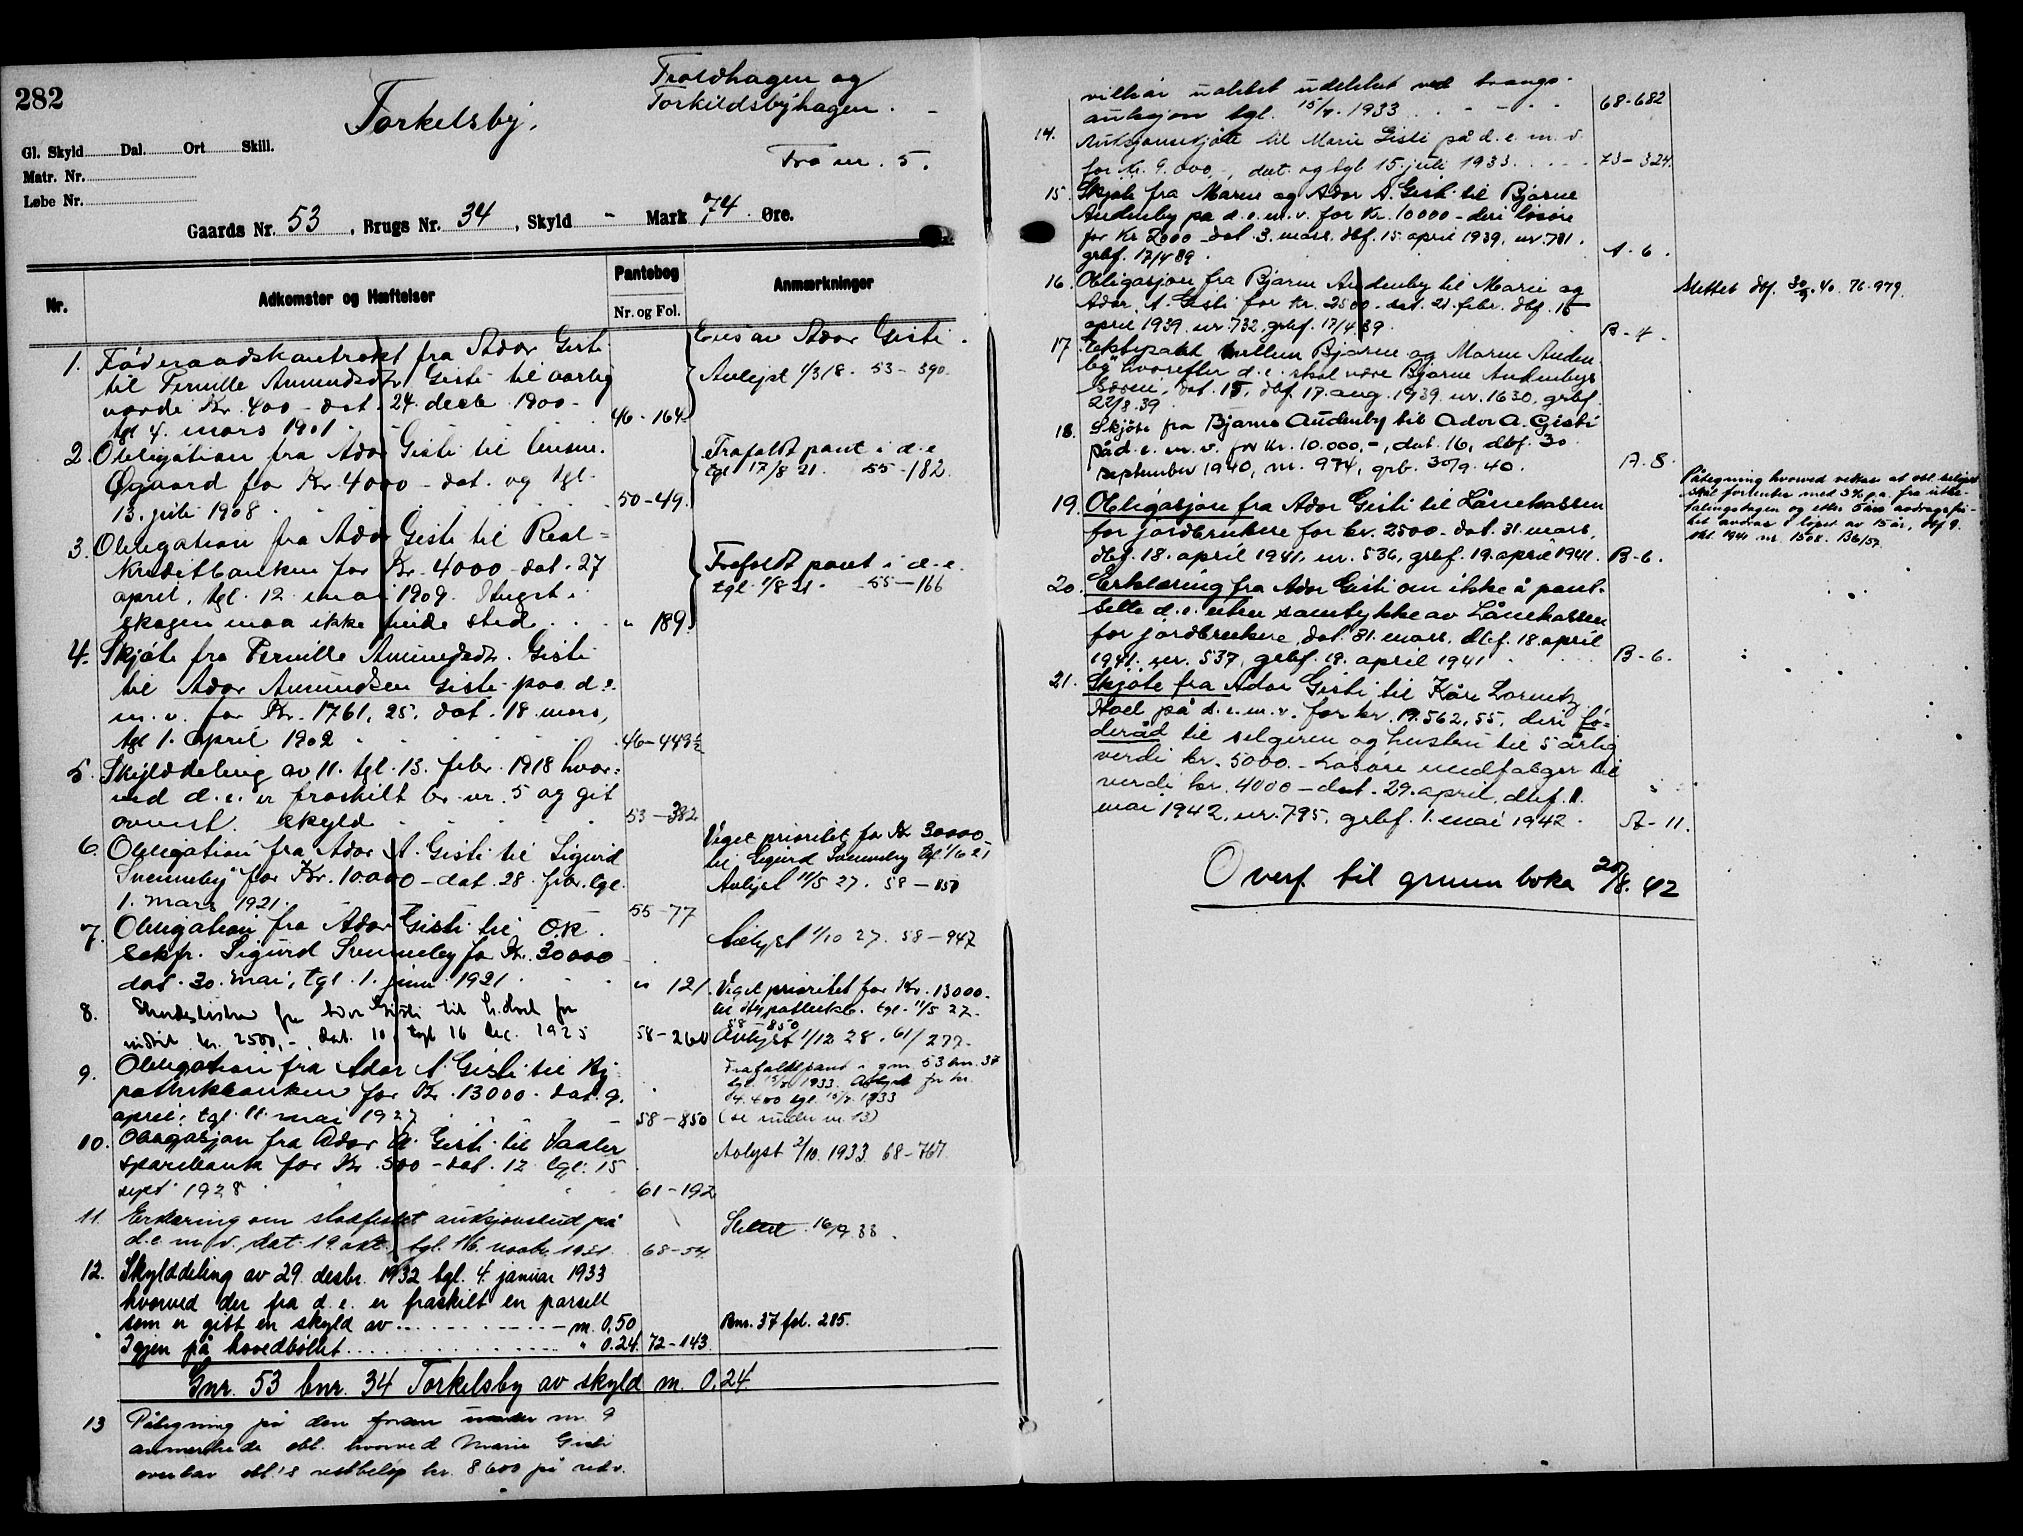 282
Torkelsby.
Troldhagen og
Torkildsbyhagen.
Fra nr. 5.
Gl. Skyld Dal. Ort Skill.
Matr. Nr.
Løbe Nr.
Gaards Nr. 53, Brugs Nr. 34, Skyld - Mark 74 Øre.
Nr. Adkomster og Hæftelser Pantebog Anmærkninger
Nr. og Fol.
1. Føderaadskontrakt fra Ador Gisti
til Pernille Amundsdtr. Gisti til aarlig
værdi Kr. 400 - dat. 24. decbr. 1900 -
tgl 4. mars 1901. 46-164
Ador Gisti.
Avlyst 1/3 18. 53-390.
2 Obligation fra Ador Gisti til
Øgaard for Kr. 4000 - dat. og tgl.
13. juli 1908. 50-49.
Frafaldt pant i d. e
tgl 17/8 21. 55-182.
3. Obligation fra Ador Gisti til Real-
kreditbanken for Kr. 4000 - dat. 27
april, tgl. 12 mai 1909. Hugst i
skogen maa ikke finde sted. " 189.
Frafaldt pant i d. e.
tgl. 1/8 21. 55-166
4. Skjøte fra Pernille Amundsdtr. Gisti
til Ador Amundsen Gisti paa d. e.
m. v. for Kr. 1761,25. dat. 18. mars,
tgl 1. april 1902 46-449½
5. Skylddeling av 11. tgl. 13. febr. 1918 hvor-
ved d. e. er fraskilt br. nr. 5 og git
ovenst. skyld 53-382
6. Obligation fra Ador A. Gisti til Sigurd
Svenneby for Kr. 10.000 - dat. 28. febr. tgl.
1. mars 1921. 55-77
Veget prioritet for Kr 30000
til Sigurd Svenneby tgl 1/6 21
Avlyst 11/5 27. 58-850
7. Obligation fra Ador Gisti til O.R.
sakfr. Sigurd Svenneby for Kr. 30000
dat. 30. mai, tgl. 1. juni 1921 " 121.
Avlyst 1/10 27. 58-947
8. Skadesløsbrev fra Ador Gisti til
indtil kr. 2500,- dat. 10, tgl 16 dec. 1925 58-260
Veget prioritet for Kr. 13000.
til Hypotekbk. tgl. 11/5 27.
58-850
Avlyst 1/12 28. 61/277.
9. Obligation fra Ador A Gisti til Hy-
pothekbanken for Kr. 13000. dat. 9.
april, tgl. 11. mai 1927 58-850
Frafaldt pant i gnr. 53 bnr. 37
tgl. 15/7 1933. Avlyst for kr.
4.400 tgl. 15/7 1933
(se under nr. 13)
10. Obligasjon fra Ador A. Gisti til Vaaler
sparebank for Kr. 500 - dat. 12. tgl. 15
sept. 1928 61-192
Avlyst 2/10. 1933. 68-767
11. Erklæring om stadfestet auksjonsbud på
d. e. m. v. dat. 19. okt. tgl. 16. novbr. 1931 68-54.
Slettet 16/9 33.
12. Skylddeling av 29. desbr. 1932 tgl. 4. januar 1933
hvorved der fra d. e. er fraskilt en parsell
som er gitt en skyld av m. 0,50
Igjen på hovedbølet " 0.24. 72-143.
Bnr. 37 fol. 285.
Gnr. 53 bnr. 34 Torkelsby av skyld m. 0,24.
13 Påtegning på den foran under nr. 9
anmerkede obl. hvorved Marie Gisti
overtar obl.'s restbeløp kr. 8600 på
vilkår udelukket ved tvangs-
auksjon tgl. 15/7. 1933 68-682
14. Auksjonsskjøte til Marie Gisti på d. e. m. v.
for kr. 9.000,-, dat. og tgl 15. juli 1933. 73-324.
15. Skjøte fra Marie og Ador A. Gisti til Bjarne
Audenby på d. e. m. v. for Kr. 10000 - deri løsøre
for Kr 2000 - dat. 3. mars, dbf. 15. april 1939, nr. 731.
grbf. 17/4 39. A-6.
16. Obligasjon fra Bjarne Audenby til Marie og
Ador A. Gisti for Kr. 2500 - dat. 21. febr. dbf. 15
april 1939. nr. 732, grbf. 17/4 39. B-4.
Slettet dbf. 30/9. 40. 76-979.
17 Ektepakt mellem Bjarne og Marie Auden-
by hvorefter d. e. skal være Bjarne Audenbys
særeie, dat. 15, dbf. 17. aug. 1939. nr. 1630, grbf.
22/8.39
18. Skjøte fra Bjarne Audenby til Ador A. Gisti
på d. e. m. v. for kr. 10.000,-, dat. 16, dbf. 30
september 1940, nr. 974, grb. 30/9. 40. A. 8.
19. Obligasjon fra Ador Gisti til Lånekassen
for jordbrukere for kr. 2500 - dat. 31. mars,
dbf. 18. april 1941, nr. 536, grbf. 19. april 1941. B-6.
Påtegning hvorved vedtas at obl. beløpet
skal forrentes med 3% p.a. fra utbe-
talingsdagen og etter 5 års avdragsfri-
het avdras i løpet av 15 år, dbf 9.
okt. 1941 nr. 1508. B6/57.
20. Erklæring fra Ador Gisti om ikke å pant-
sette d. e. uten samtykke av Lånekassen
for jordbrukere, dat. 31. mars, dbf. 18. april
1941. nr. 537, grbf. 19. april 1941 B-6.
21. Skjøte fra Ador Gisti til Kåre Lorentz
Hoel på d. e. m. v. for kr. 19.562,55, deri fø-
deråd til selgeren og hustru til 5 årlig
verdi kr. 5000. - Løsøre medfølger til
verdi kr. 4000 - dat. 29. april, dbf. 1.
mai 1942, nr. 795, grbf. 1. mai 1942. A-11.
Overf. til grunnboka 20/8. 42